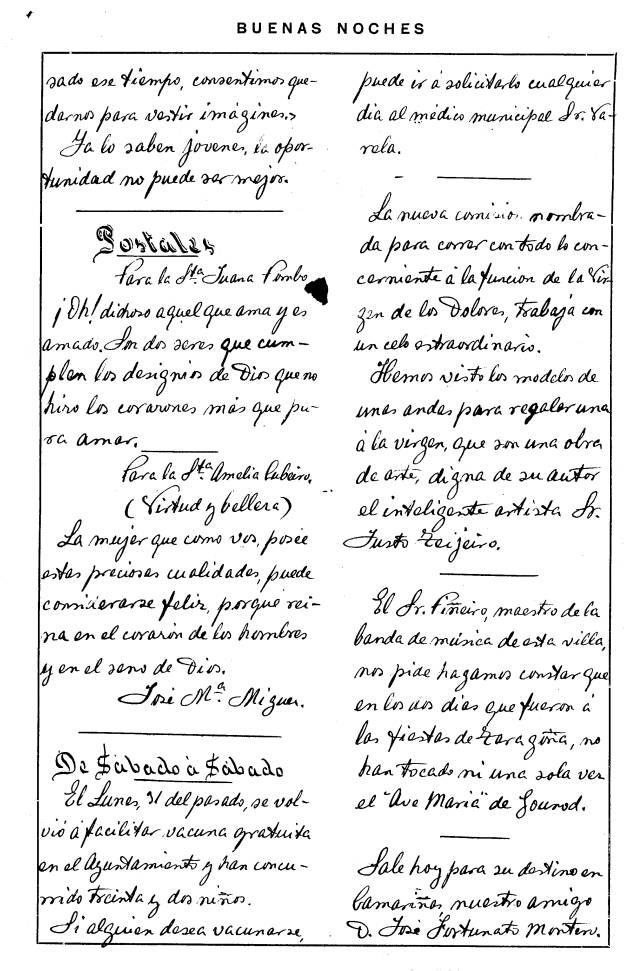 BUENAS NOCHES
sado ese tiempo, consentimos que-
darnos para vestir imágines.»
Ya lo saben jóvenes, la opor-
tunidad no puede ser mejor.
Postales
Para la Sta. Juana Pombo
¡Oh! dichoso aquel que ama y es
amado. Son dos seres que cum-
plen los designios de Dios que no
hizo los corazones más que pa-
ra amar.
Para la Sta. Amelia Cubeiro.
(Virtud y belleza)
La mujer que como vos, posée
estas preciosas cualidades, puede
considerarse feliz, porque rei-
na en el corazón de los hombres
y en el seno de Dios.
José Mª. Miguez.
De Sábado à Sábado
El Lunes, 31 del pasado, se vol-
vió á facilitar vacuna gratuita
en el Ayuntamiento y han concu-
rrido treinta y dos niños.
Si alguien desea vacunarse,
puede ir á solicitarlo cualquier
dia al médico municipal Sr. Va-
rela.
La nueva comision nombra-
da para correr con todo lo con-
cerniente á la funcion de la Vir-
gen de los Dolores, trabaja con
un celo estraordinario.
Hemos visto los modelos de
unas andas para regalar una
á la virgen, que son una obra
de arte, digna de su autor
el inteligente artista Sr.
Justo Teijeiro.
El Sr. Piñeiro, maestro de la
banda de música de esta villa,
nos pide hagamos constar que
en los dos dias que fueron á
las fiestas de Zaragoña, no
han tocado ni una sola vez
el "Ave Maria" de Gounod.
Sale hoy para su destino en
Camariñas nuestro amigo
D. José Fortunato Montero.